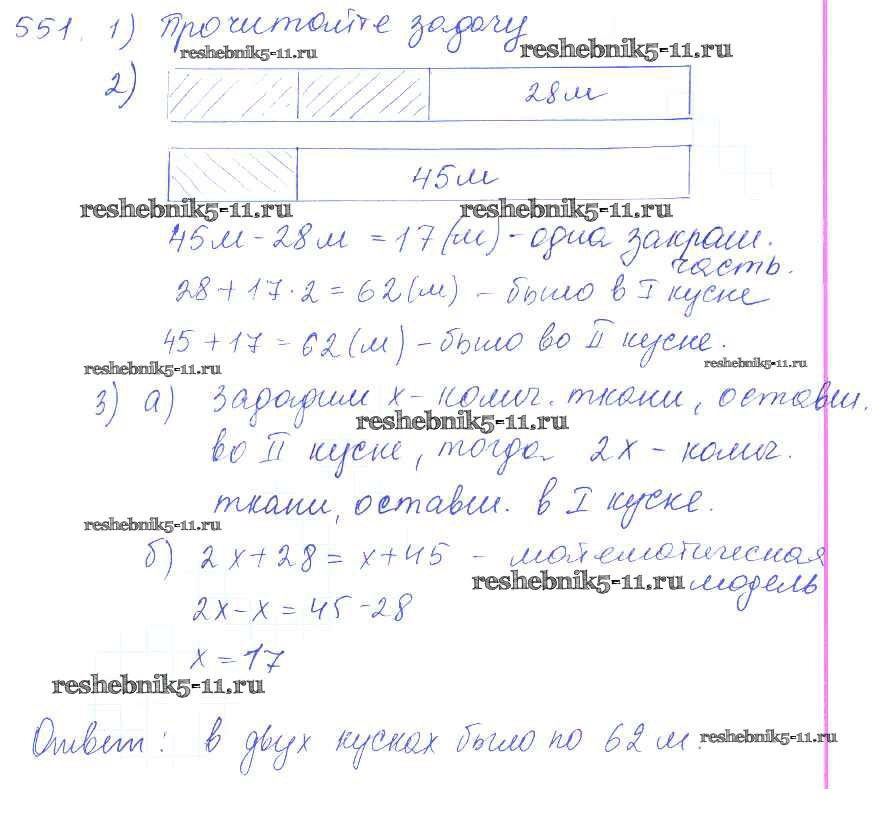 551. 1) Прочитайте задачу
reshebnik5-11.ru reshebnik5-11.ru
2)
28м
45м
reshebnik5-11.ru reshebnik5-11.ru
45м - 28м = 17 (м) - одна закраш.
часть.
28 + 17 · 2 = 62 (м) - было в I куске
45 + 17 = 62 (м) - было во II куске.
reshebnik5-11.ru reshebnik5-11.ru
3) а) Зададим х - колич. ткани, оставш.
reshebnik5-11.ru
во II куске, тогда 2х - колич.
ткани, оставш. в I куске.
reshebnik5-11.ru
б) 2х + 28 = х + 45 - математическая
reshebnik5-11.ru модель
2х - х = 45 - 28
х = 17
reshebnik5-11.ru
Ответ: в двух кусках было по 62 м.
reshebnik5-11.ru